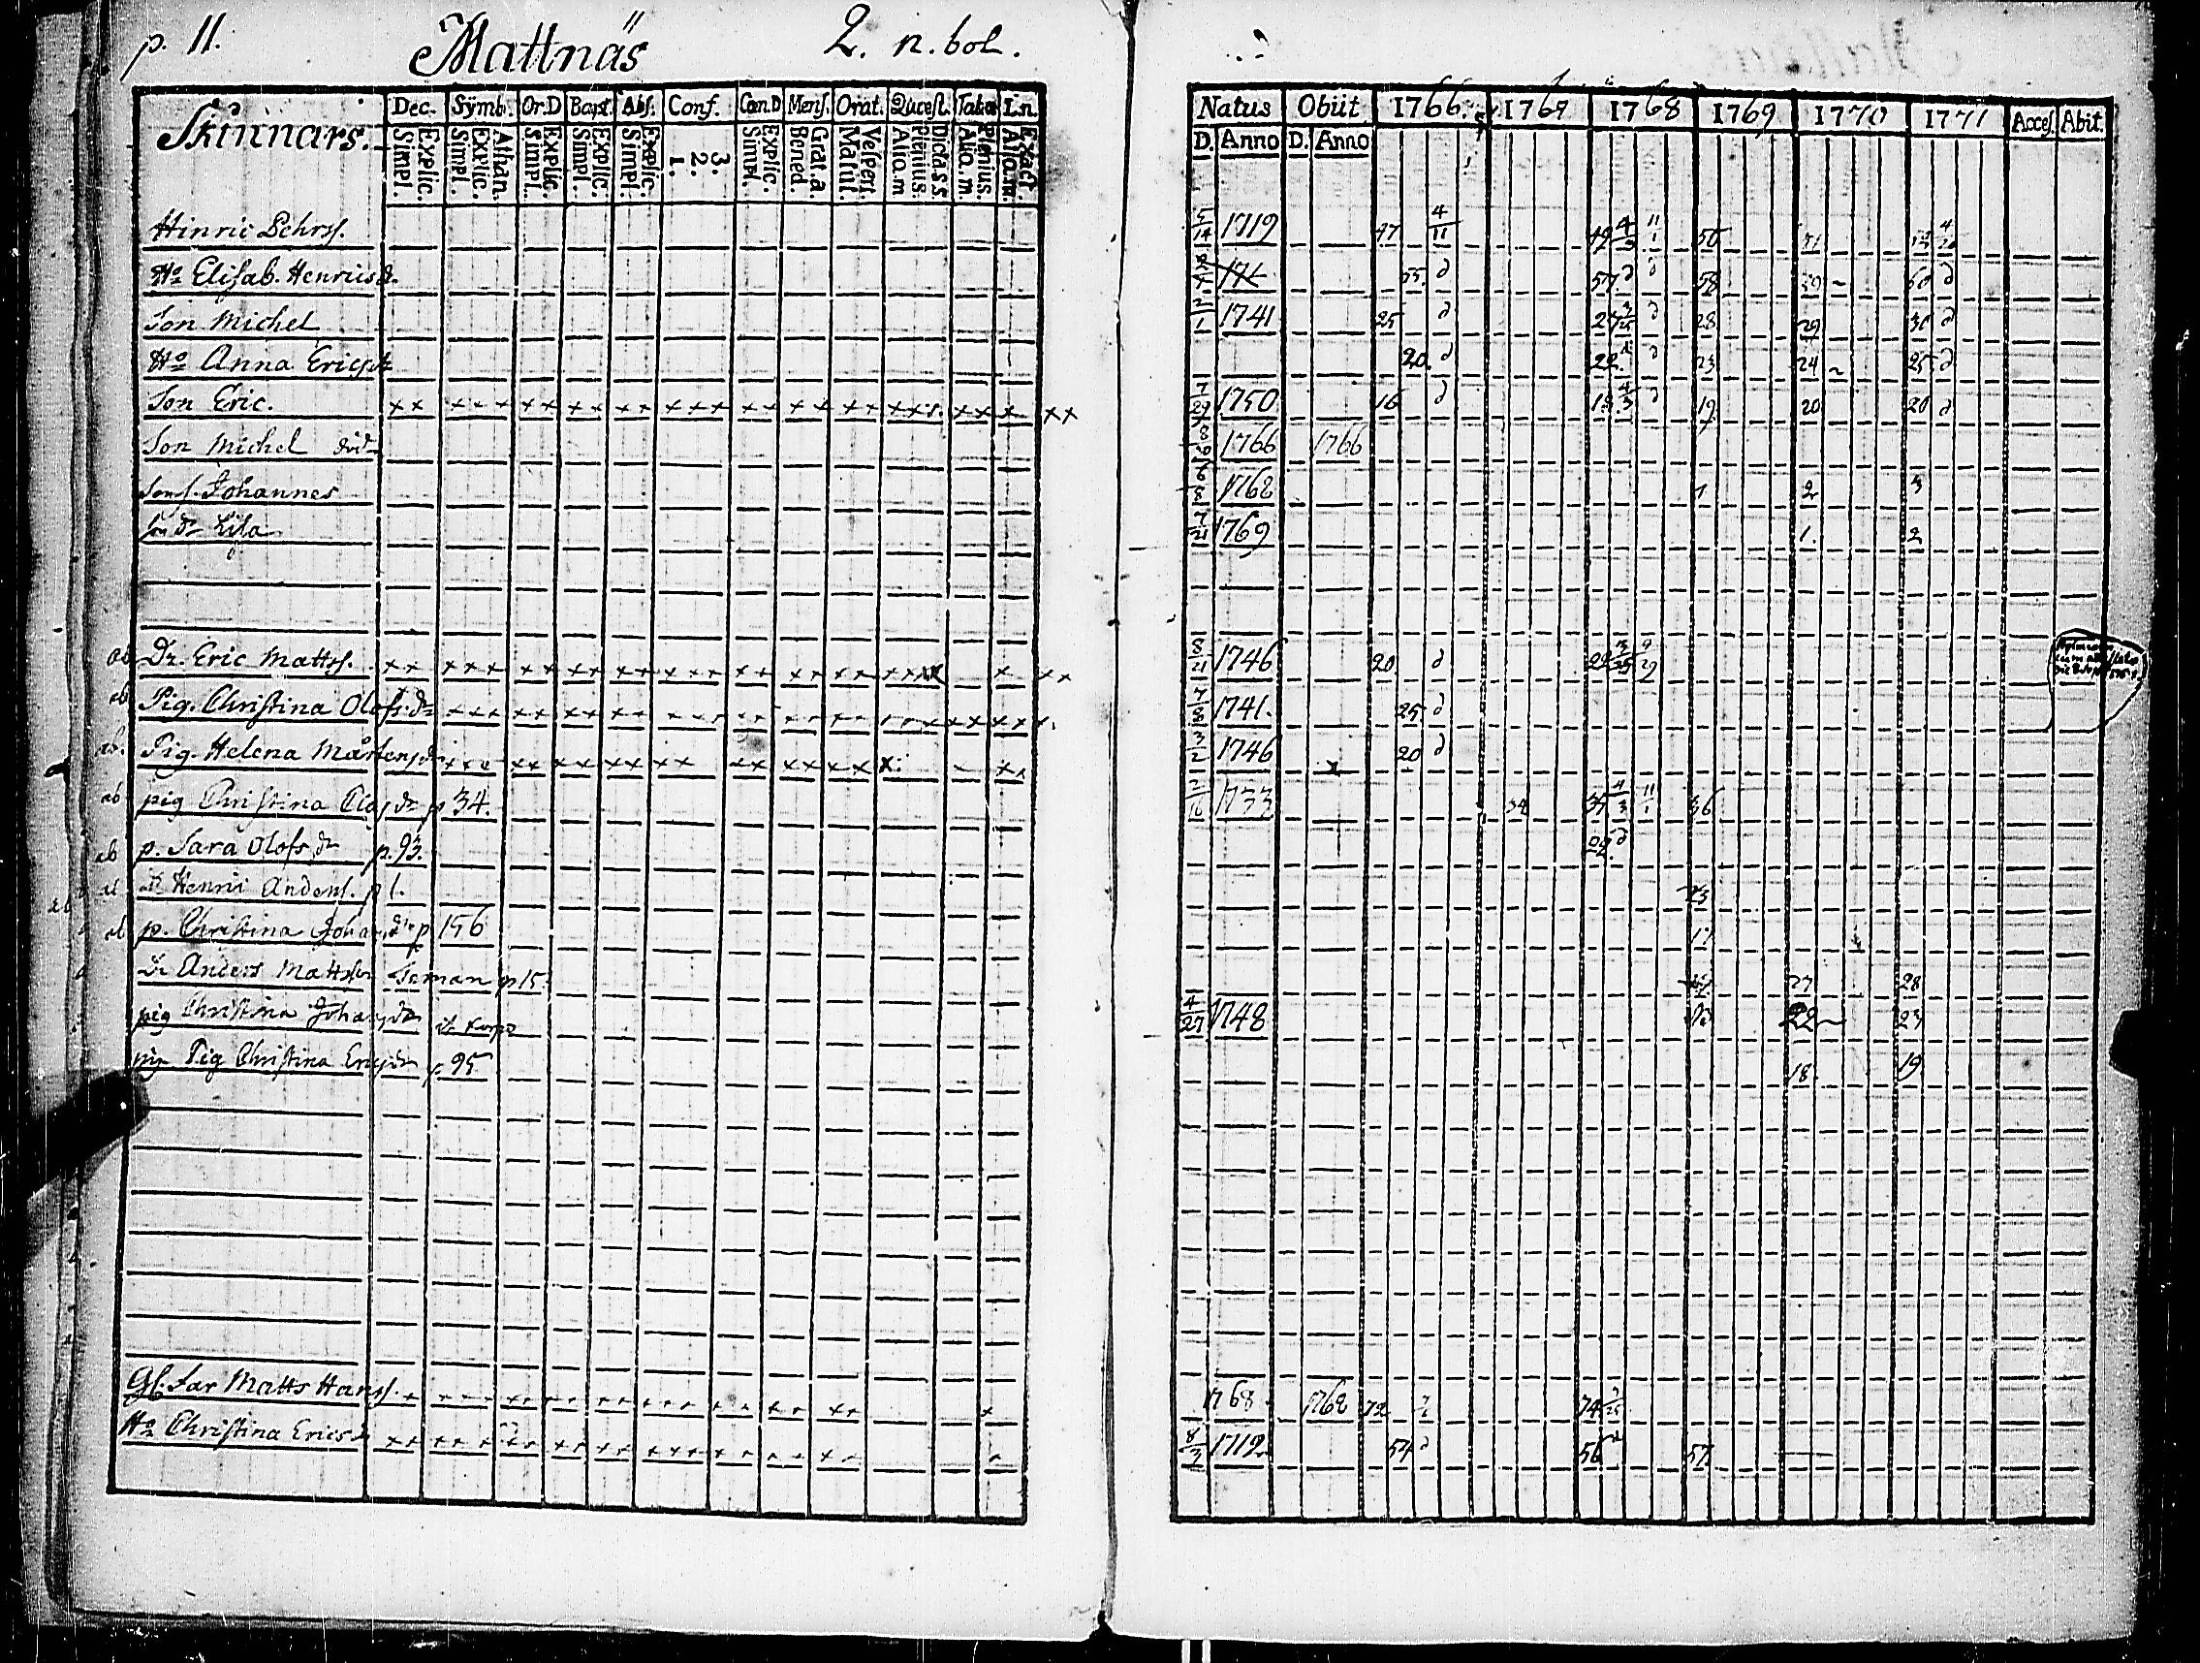 p. 11. Mattnäs 2. n. bol.
Skinnars. Dec. Symb. Or.D Bapt. Abs. Conf. Can.D Mens. Orat. Quæst. Tabul Ln.
Simpl. Explic. Simpl. Explic. Athan. Simpl. Explic. Simpl. Explic. Simpl. Explic. 1. 2. 3. Simpl. Explic. Bened. Grat.a. Matut. Vespert. Alio.m Plenius. Dicta s.s. Alio.m. Plenius. Alio.m. Exact.
Natus Obiit 1766. 1767 1768 1769 1770 1771 Acces. Abit.
D. Anno D. Anno
Hinric Pehrss. 5/14 1719 47 4/11 49 11/1 50 51
Ho Elisab. Henricsdr 55 d 57 d d 58 59 60 d
Son Michel 2/1 1741 25 d 27 d 28 29 30 d
Ho Anna Ericsdr 20. d 22. d d 23 24 25 d
Son Eric. x x x x x x x x x x x x x x x x x x x x x x x x x x x 7/29 1750 16 d 18 4/3 d 19 20 20 d
Son Michel död 1766 1766
sons. Johannes 1768 1 2 3
son dr Lisa 7/21 1769 1. 2
ab Dr. Eric Mattss. x x x x x x x x x x x x x x x x x x x x x x x 8/21 1746 20 d 22
ab Pig. Christina Olofsdr x x x x x x x x x x x x 7/8 1741. 25 d
ab. Pig. Helena Mårtensdr x x x x x x x x x x x x x x x x x x x 3/2 1746 x 20 d
ab pig Christina Olofsdr p 34. 2/16 1733 34 35 4/3 11/1 36
ab p. Sara Olofsdr p. 93. 22. d
ab dr Henric Anders. p 1. 23
ab p. Christina Johansdr p 156 17
Dr Anders Mattson Seman p 15. 27 28
pig Christina Johansdr 4/27 1748 22 23
pig Pig Christina Ericsdr p 95 18. 19
Gb. Far Matts Hanss. 1768 1768 72 74
Ho Christina Ericsdr x x x x x x x x x x x x x x x x x x x 8/3 1712 54 d 56 d 57